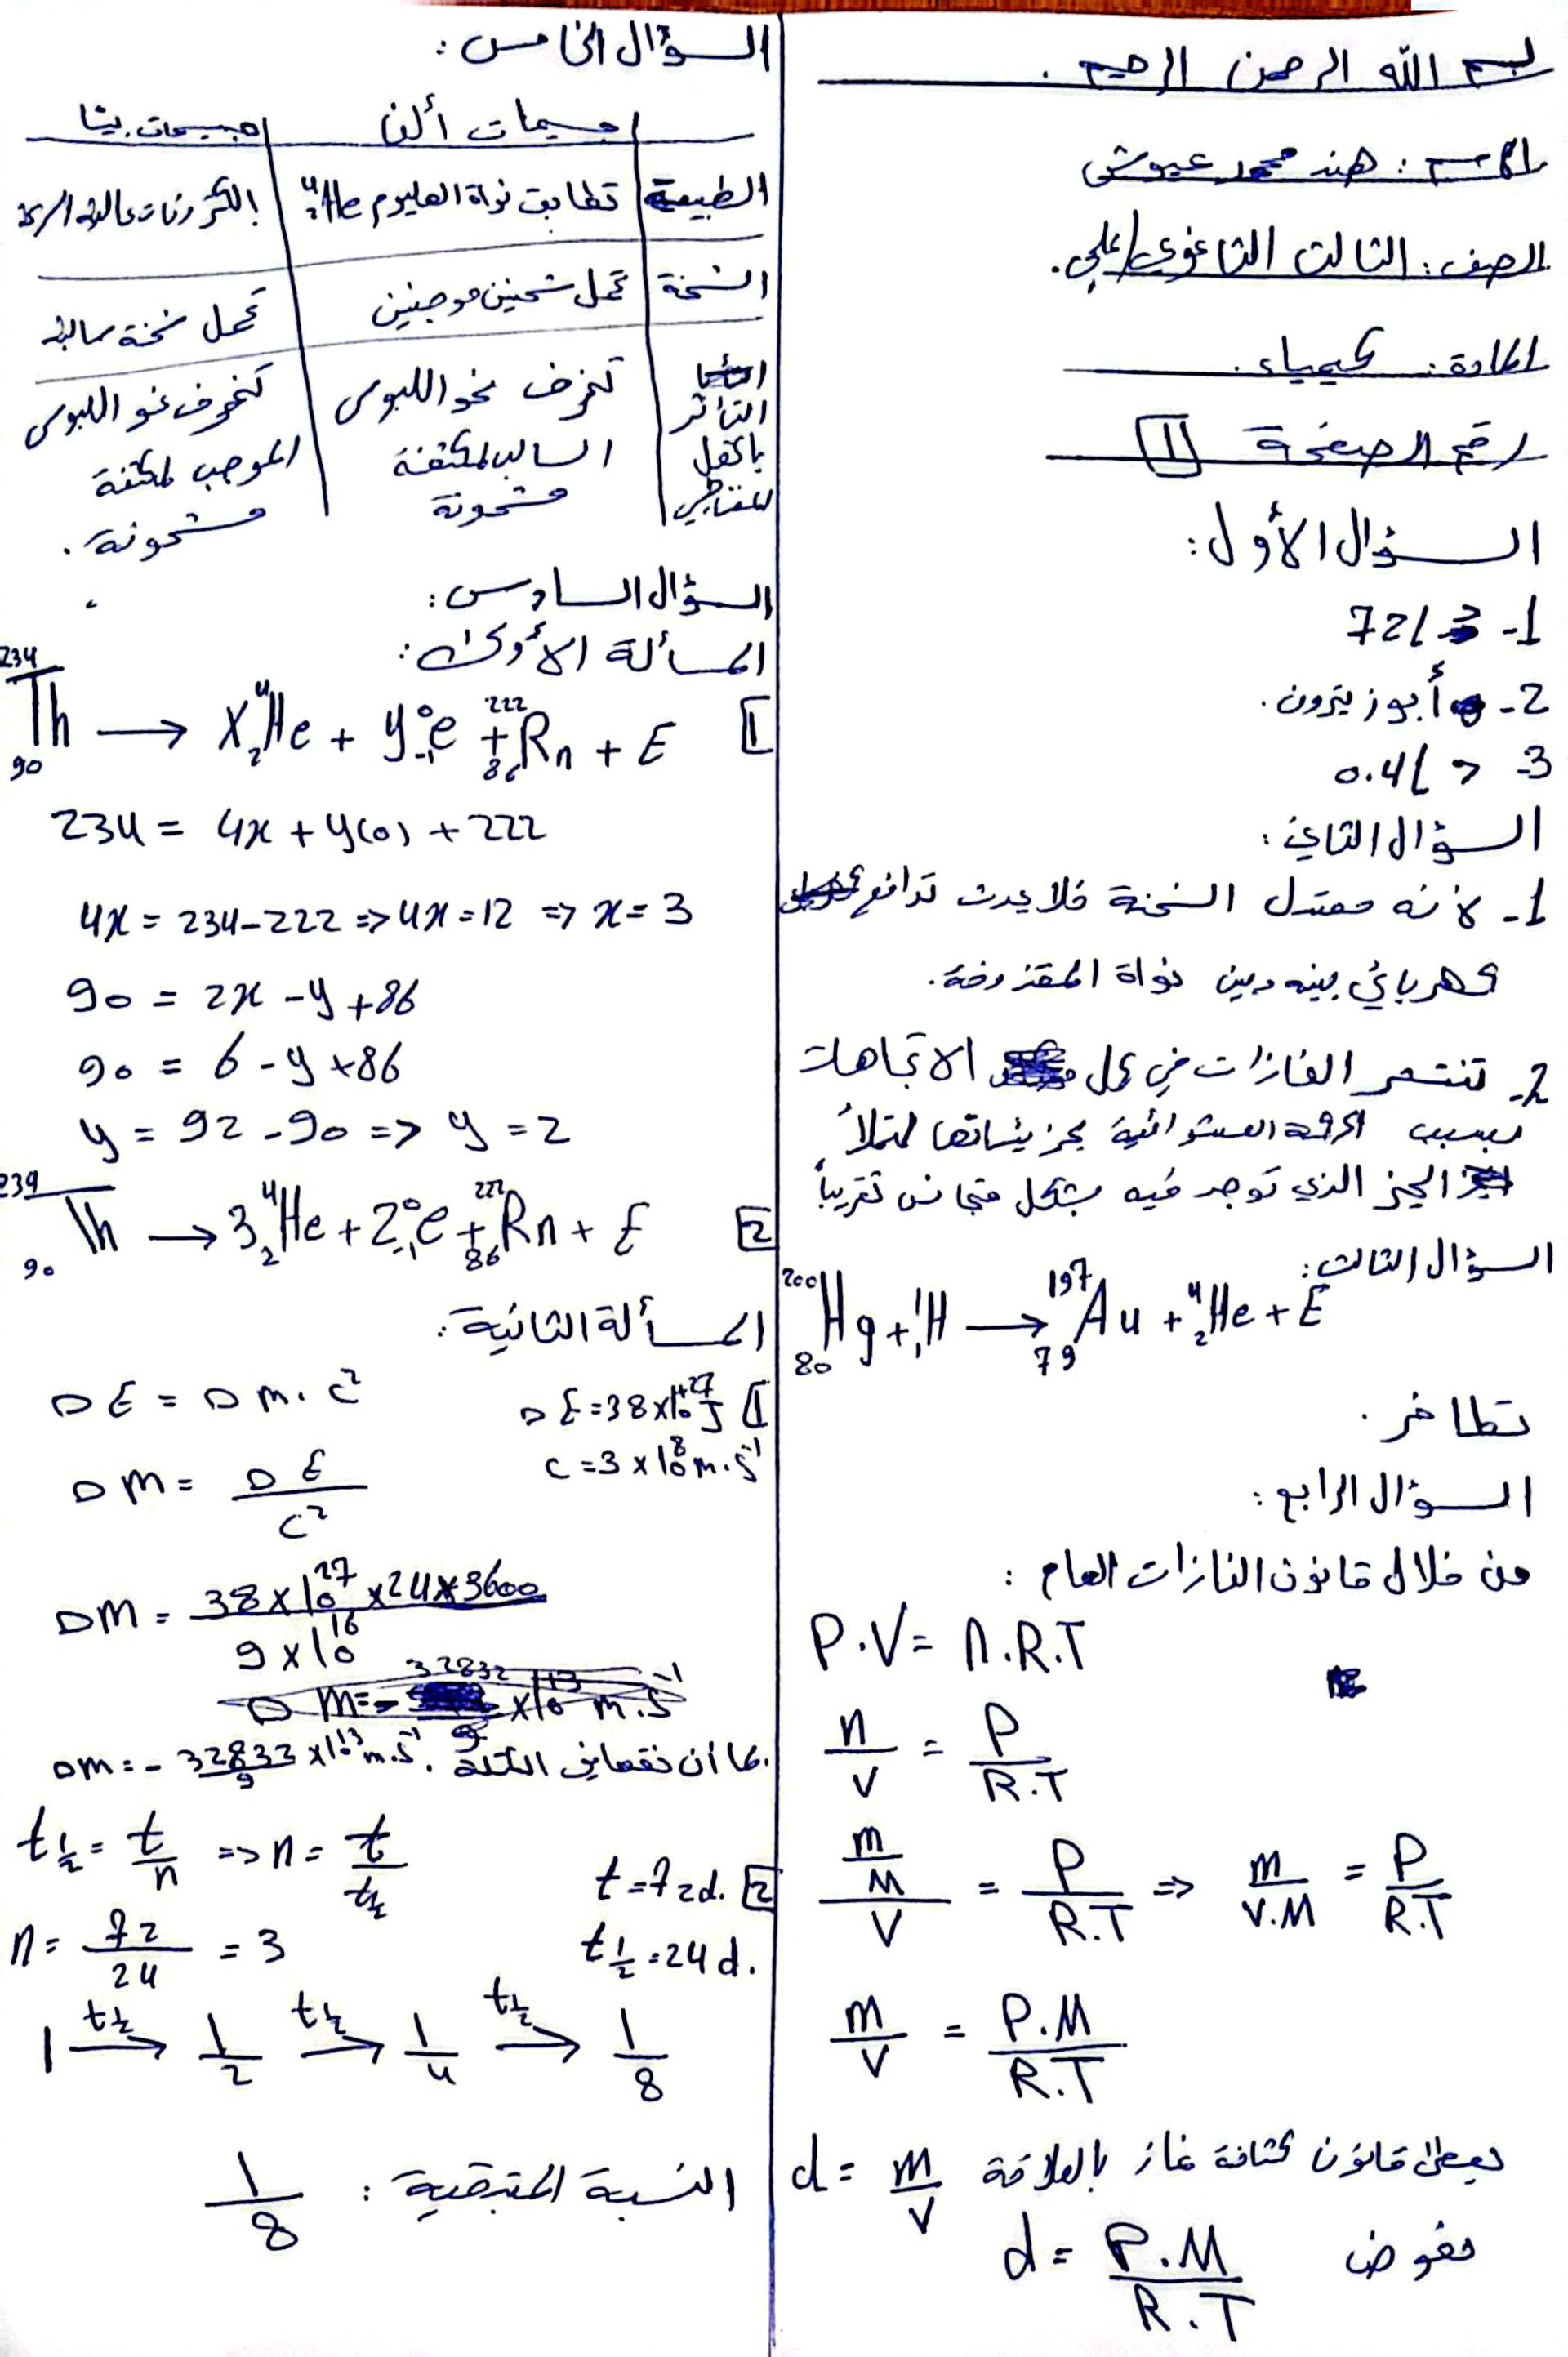 بسم الله الرحمن الرحيم .
الاسم : هند محمد عيوش
الصف : الثالث الثانوي / علمي.
المادة : كيمياء .
رقم الصفحة 1
السؤال الأول :
1- 72 /
2- أبو زيترون .
3- > / 0.4
السؤال الثاني :
1- لأنه معتدل الشحنة فلا يحدث تدافع
كهربائي بينه وبين نواة المقذوفة .
2- تنتشر الغازات في كل الاتجاهات
بسبب الحركة العشوائية لجزيئاتها لتملأ
الحيز الذي توجد فيه بشكل متجانس تقريباً
السؤال الثالث :
²⁰⁰₈₀Hg + ¹₁H → ¹⁹⁷₇₉Au + ⁴₂He + E
تطافر .
السؤال الرابع :
من خلال قانون الغازات العام :
P.V = n.R.T
n/V = P/R.T
(m/M)/V = P/R.T ⇒ m/V.M = P/R.T
m/V = P.M/R.T
يعطى قانون كثافة غاز بالعلاقة d = m/V
نعوض d = P.M/R.T
السؤال الخامس :
جسيمات ألفا | جسيمات بيتا
الطبيعة | تطابق نواة الهليوم ⁴₂He | إلكترونات عالية السرعة
الشحنة | تحمل شحنتين موجبتين | تحمل شحنة سالبة
التأثر بالحقل المغناطيسي | تنحرف نحو اللبوس السالب لمكثفة مشحونة | تنحرف نحو اللبوس الموجب لمكثفة مشحونة .
السؤال السادس :
المسألة الأولى :
1 ²³⁴₉₀Th → X⁴₂He + y⁰₋₁e + ²²²₈₆Rn + E
234 = 4x + y(0) + 222
4x = 234 - 222 ⇒ 4x = 12 ⇒ x = 3
90 = 2x - y + 86
90 = 6 - y + 86
y = 92 - 90 ⇒ y = 2
2 ²³⁴₉₀Th → 3⁴₂He + 2⁰₋₁e + ²²²₈₆Rn + E
المسألة الثانية :
1 ΔE = 38 × 10⁺²⁷ J
ΔE = Δm . c²
C = 3 × 10⁸ m.s⁻¹
Δm = ΔE/C²
Δm = 38 × 10²⁷ × 24 × 3600 / 9 × 10¹⁶
بما أن نقصان في الكتلة . Δm = - 32832/9 × 10⁺¹³ m.s⁻¹
t½ = t/n ⇒ n = t/t½
2 t = 72 d.
t½ = 24 d.
n = 72/24 = 3
1 —t½→ 1/2 —t½→ 1/4 —t½→ 1/8
النسبة المتبقية : 1/8